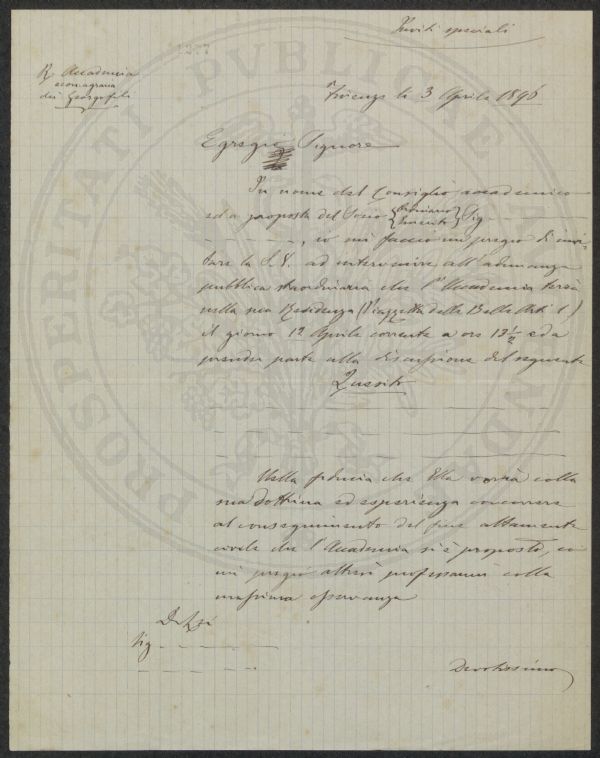 Inviti speciali
R. Accademia
econ. agraria
dei Georgofili
Firenze li 3 Aprile 1896
Egregio Signore
In nome del Consiglio accademico
ed a proposta del Socio { Ordinario } Sig.
, io mi faccio un pregio di invi-
tare la S. V. ad intervenire all'adunanza
pubblica straordinaria che l'Accademia terrà
nella sua Residenza (Piazzetta delle Belle Arti 1)
il giorno 12 Aprile corrente a ore 12 1/2 ed a
prender parte alla discussione del seguente
Quesito
Nella fiducia che Ella vorrà colla
sua dottrina ed esperienza concorrere
al conseguimento del fine altamente
civile che l'Accademia si è proposto, io
mi pregio altresì professarmi colla
massima osservanza
Di
Sig.
Devotissimo
PROSPERITATI PUBLICAE AUGENDAE